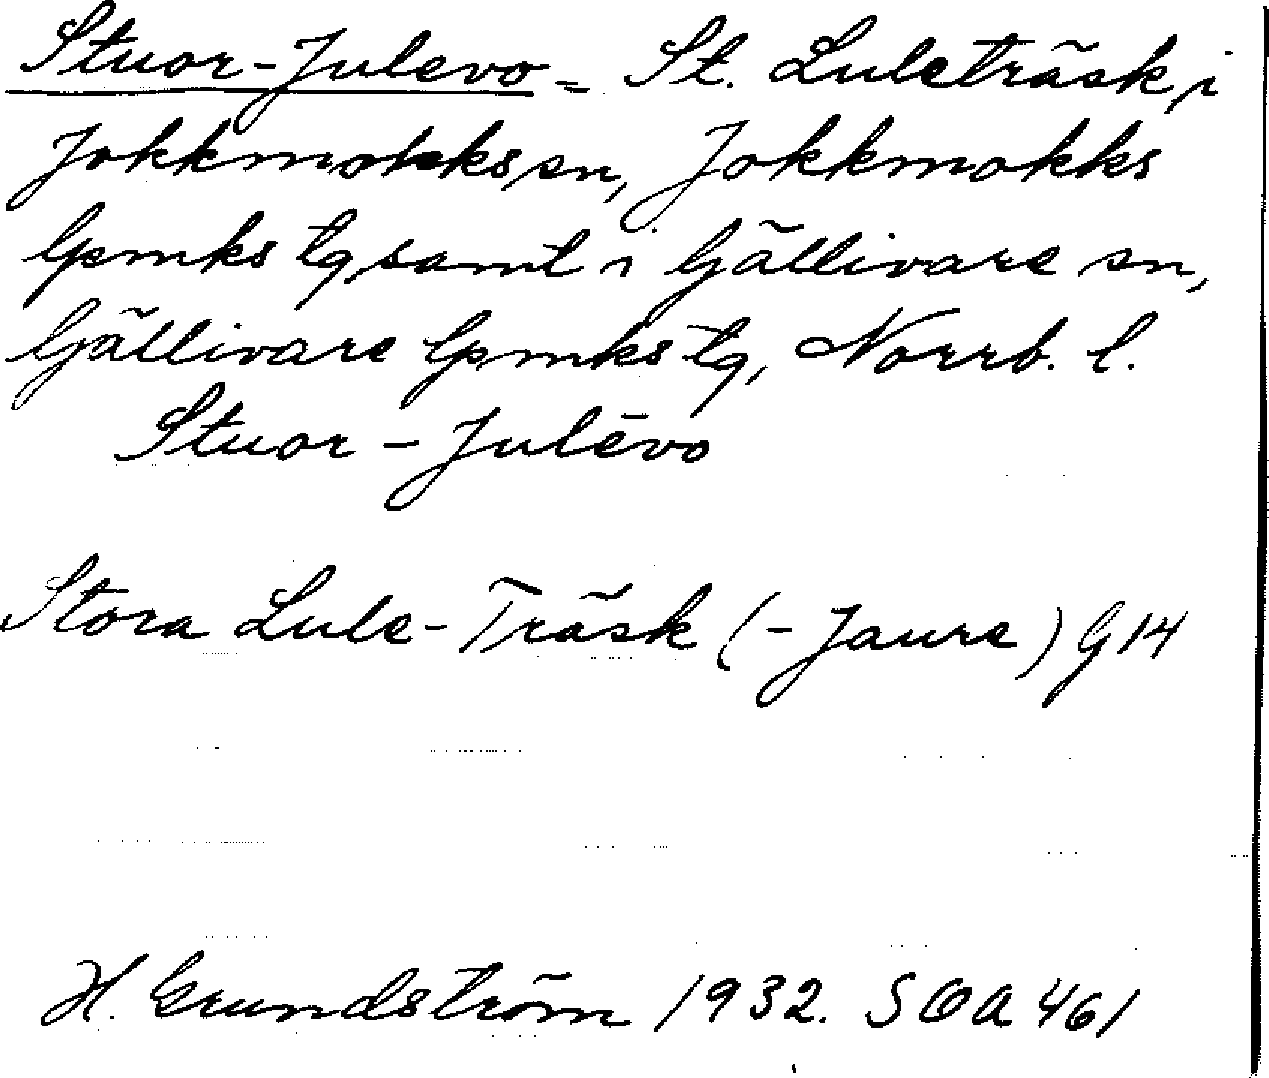 Stuor-Julevo = St. Luleträsk i
Jokkmokks sn, Jokkmokks
lpmks tg, samt i Gällivare sn,
Gällivare lpmks tg, Norrb. l.
Stuor-Julēvo
Stora Lule-Träsk (-Jaure) G 14
H. Grundström 1932. SOA 461